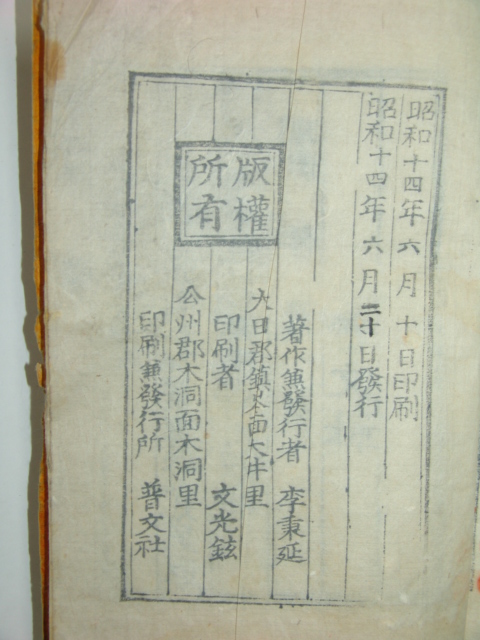 昭和十四年六月十日印刷
昭和十四年六月二十日發行
版權
所有
著作兼發行者 李秉延
郡鎮岑面大 里
印刷者 文光鉉
公州郡木洞面木洞里
印刷兼發行所 普文社